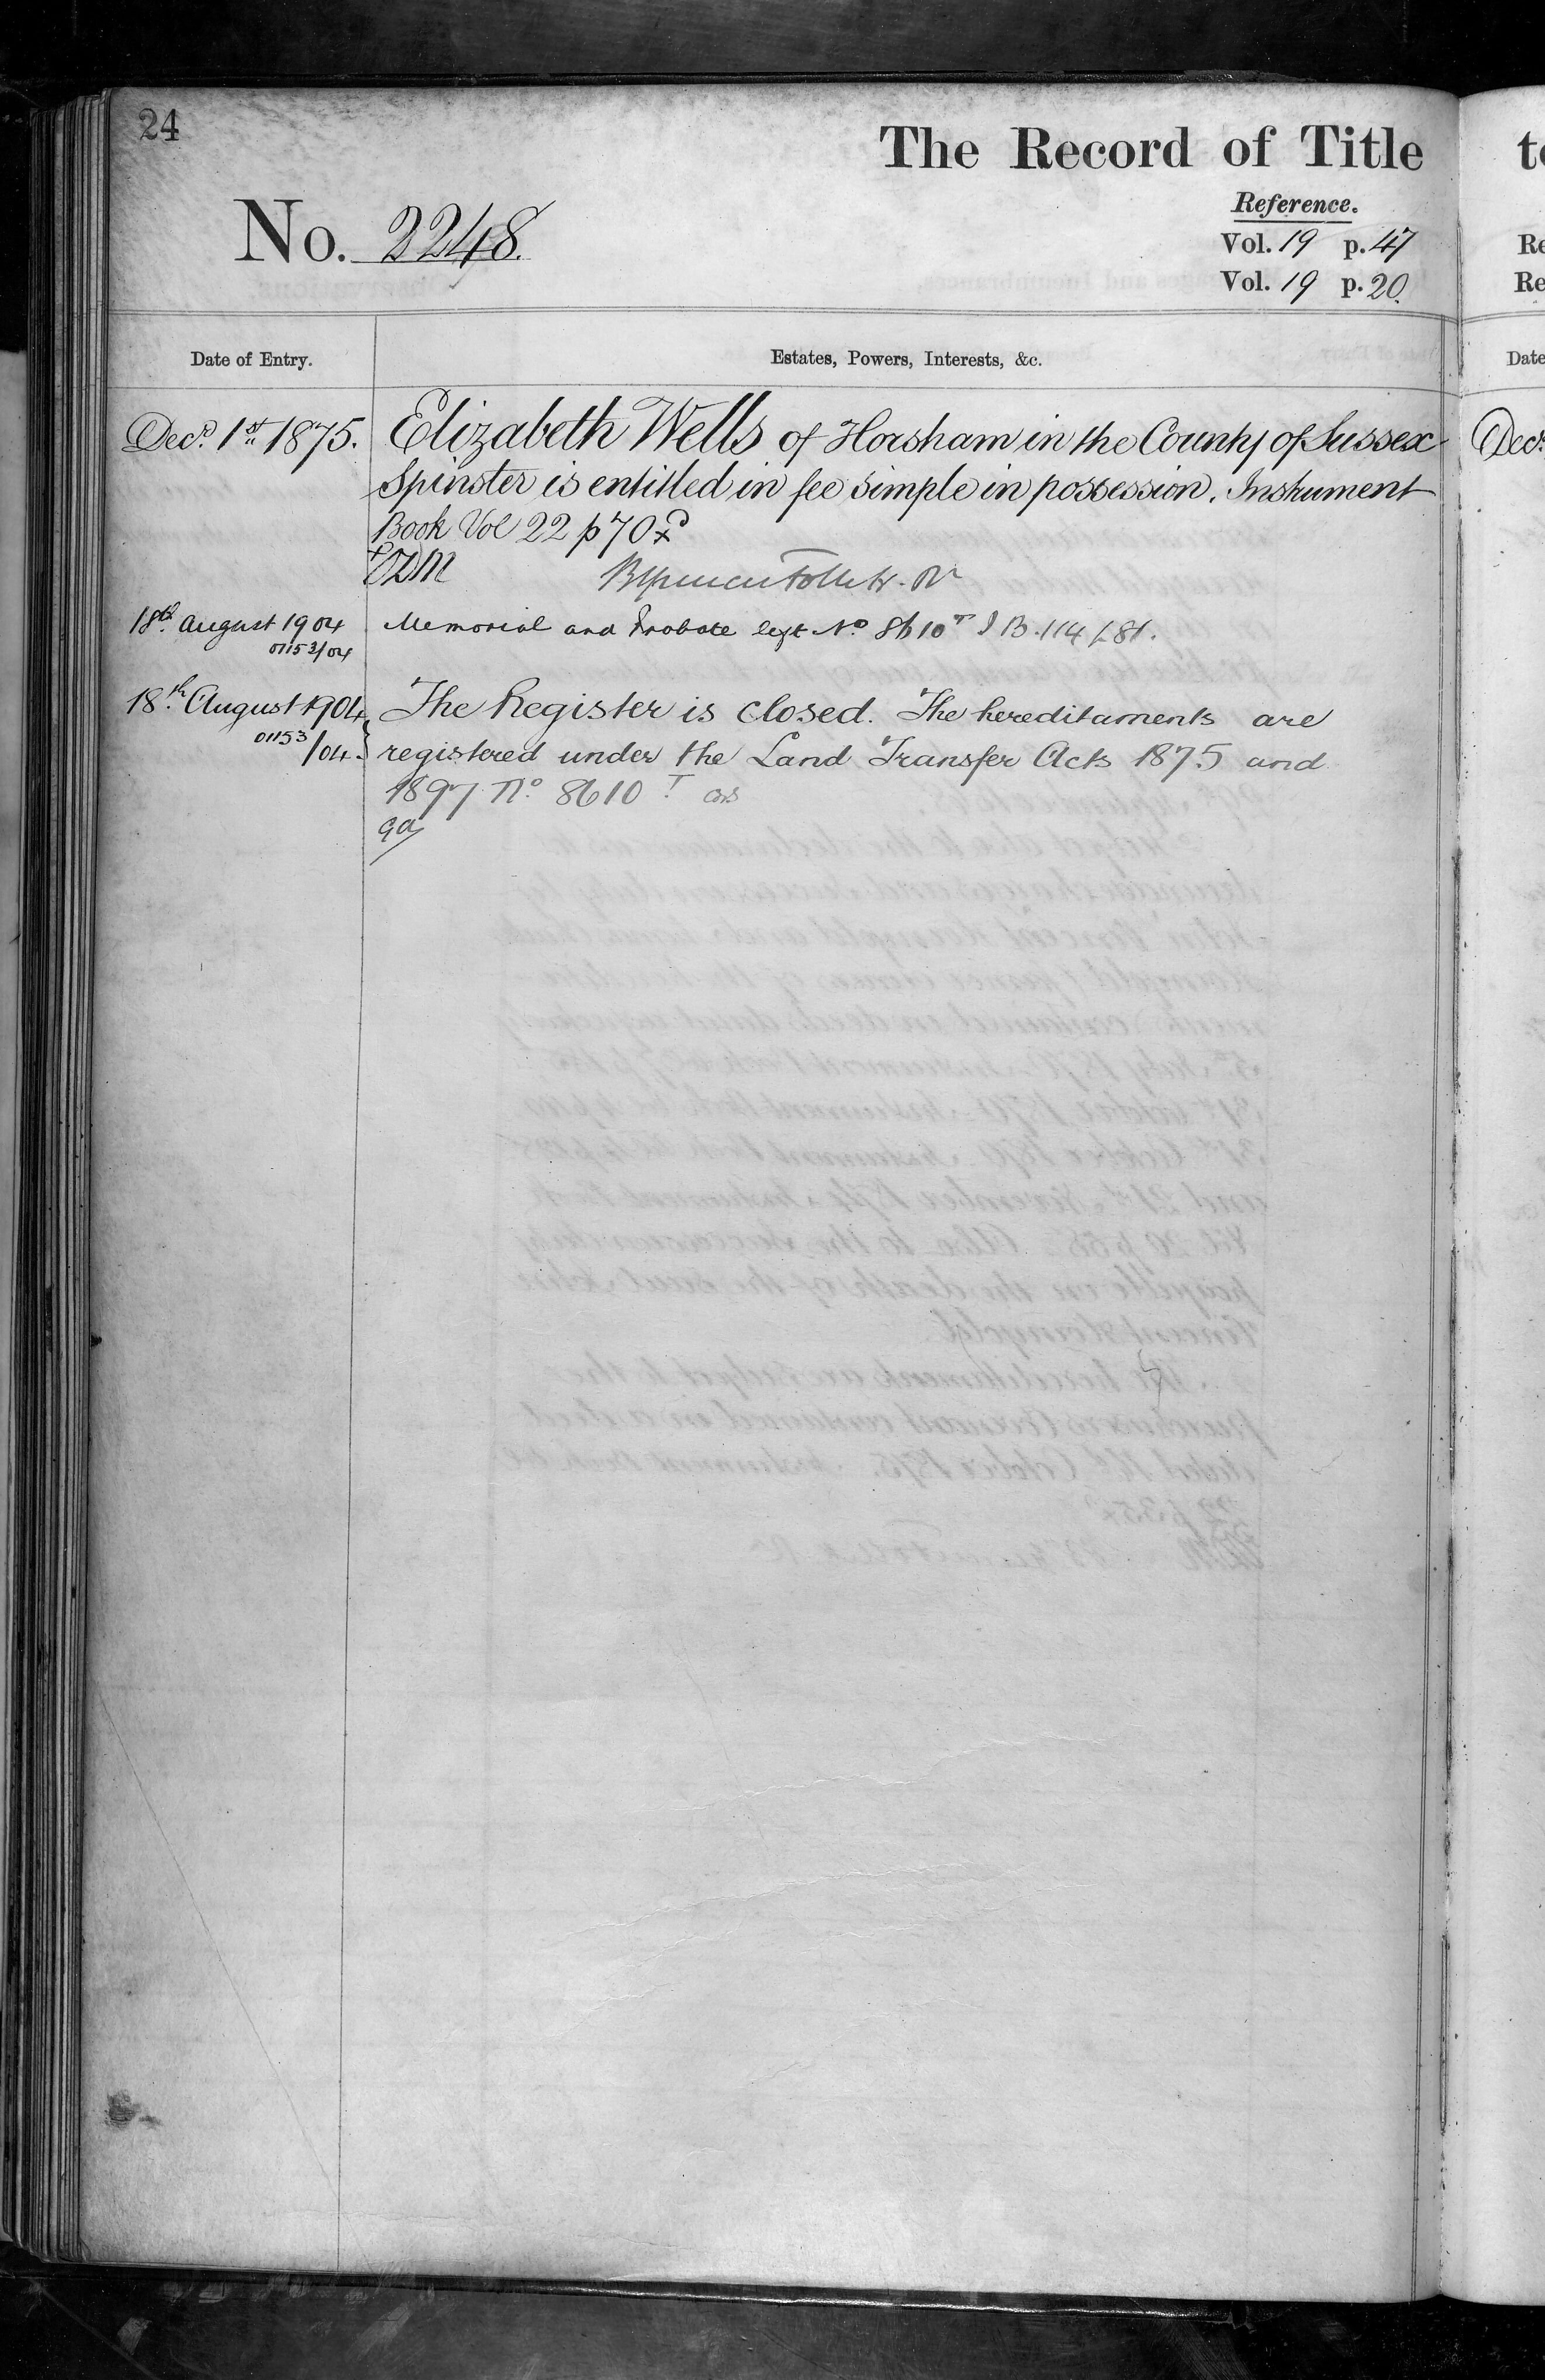 24
The Record of Title
No. 2248.
Reference.
Vol. 19 p. 47
Vol. 19 p. 20.
Date of Entry.
Estates, Powers, Interests, &c.
Decr. 1st 1875.
Elizabeth Wells of Horsham in the County of Sussex
Spinster is entitled in fee simple in possession. Instrument
Book Vol 22 p 70
18th August 1904
01153/04
Memorial and Probate left No 8610 T I B. 114 f. 81.
18th August 1904
01153/04.
The Register is closed. The hereditaments are
registered under the Land Transfer Acts 1875 and
1897 No 8610 T
Date
Decr.